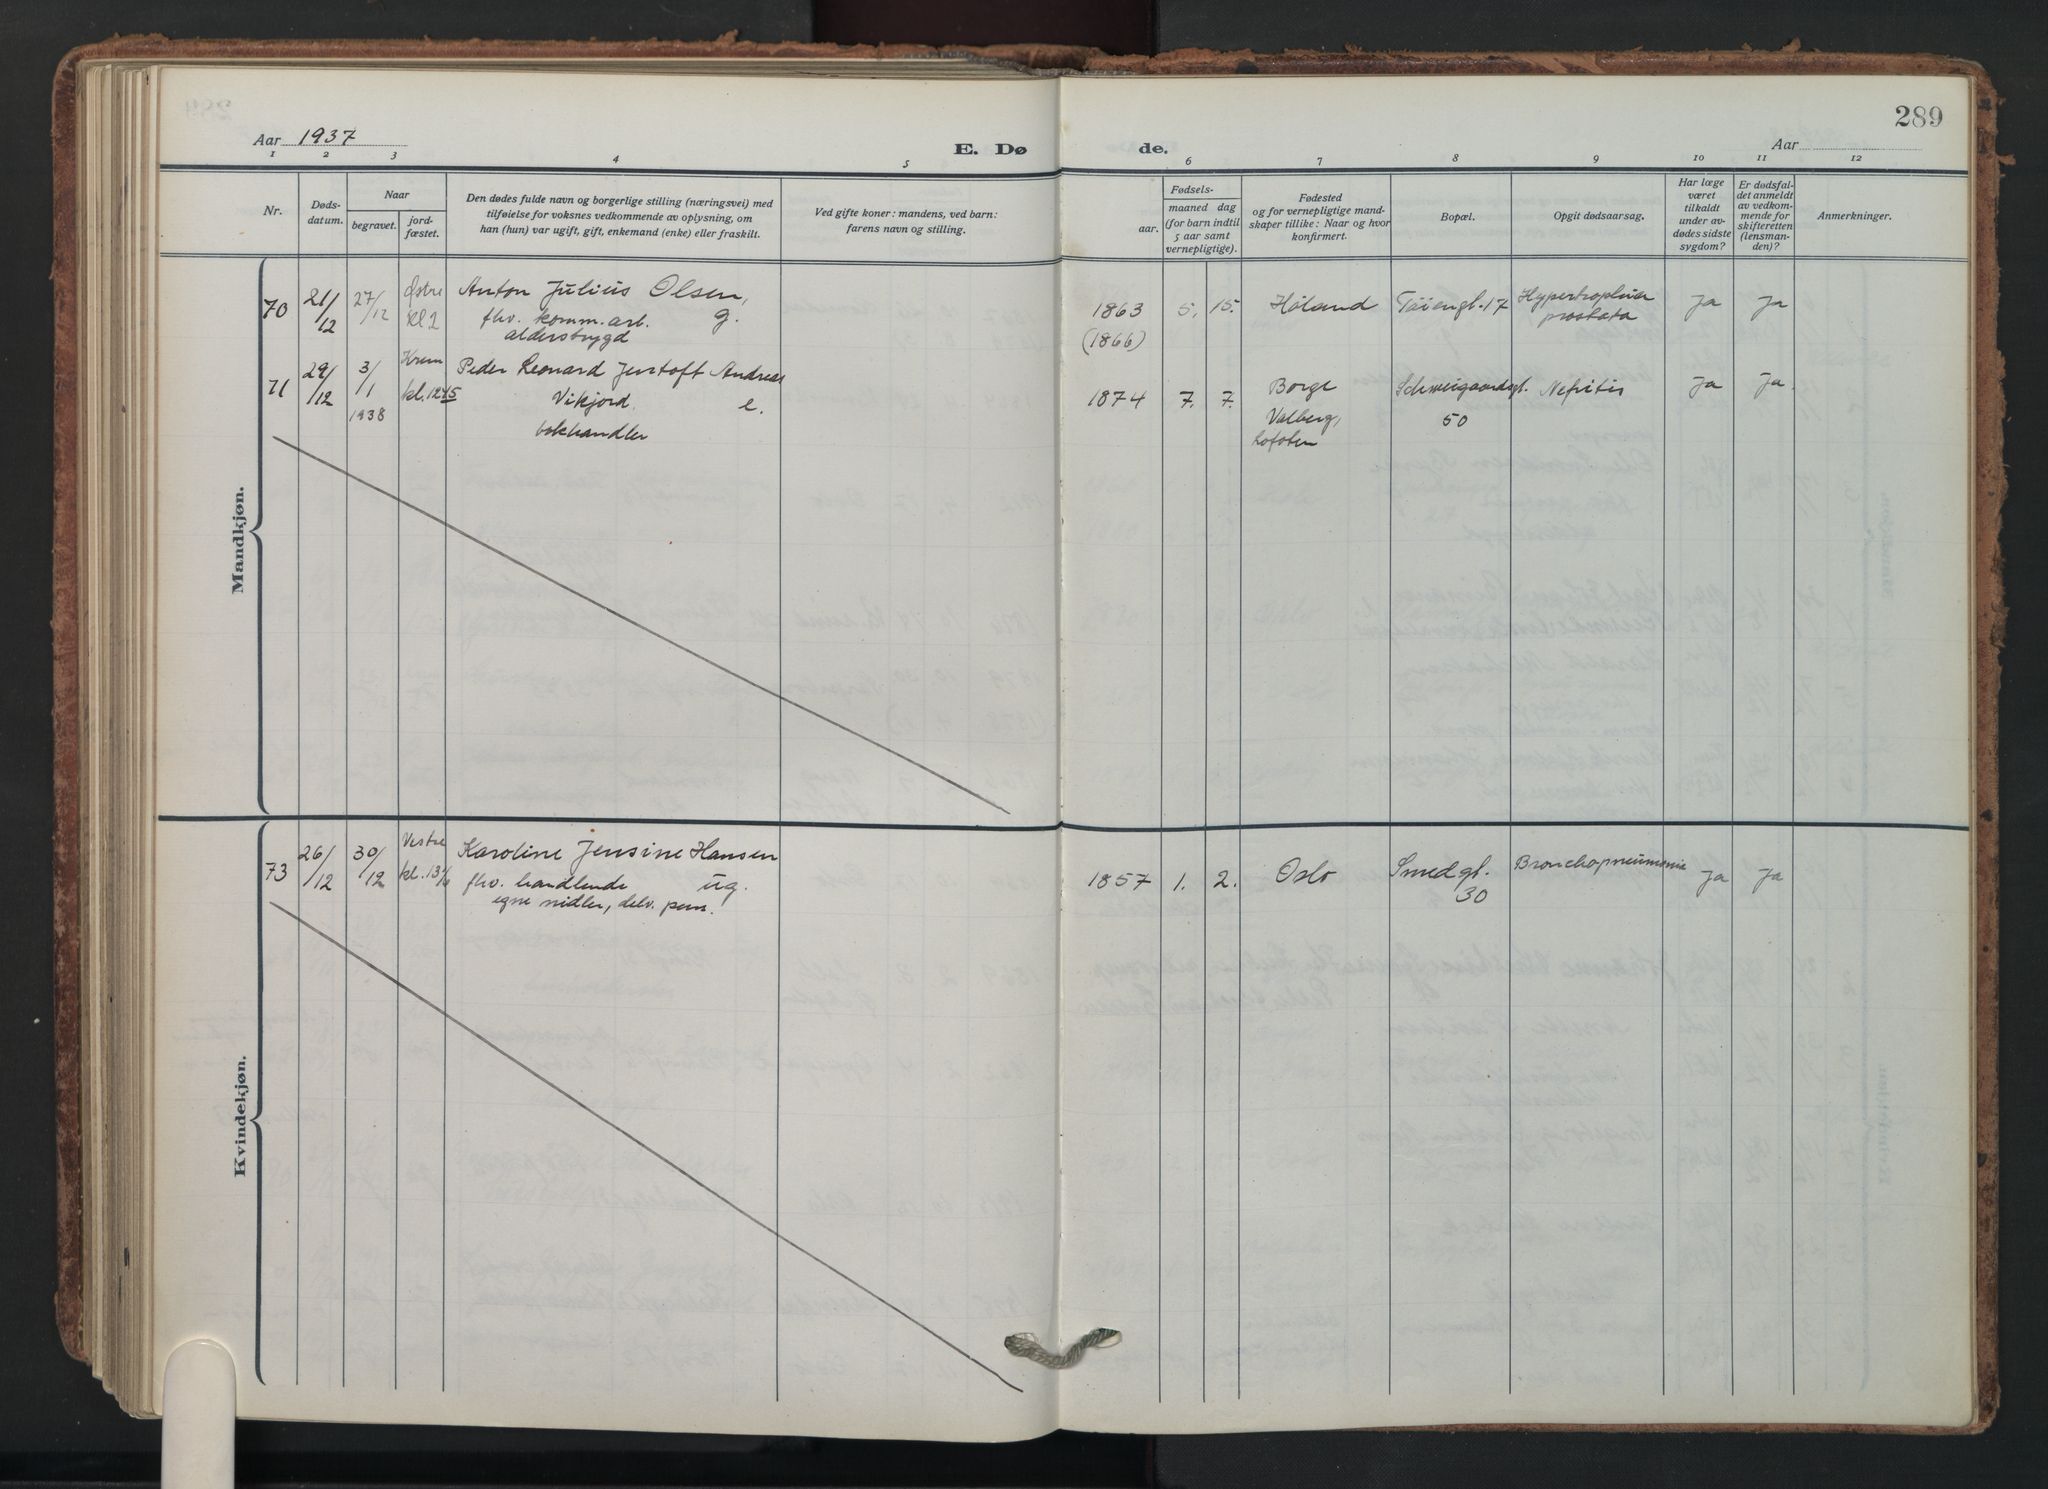 289
Aar 1937 E. Dø de. Aar
1 2 3 4 5 6 7 8 9 10 11 12
Nr.
Døds-
datum.
Naar
begravet.
jord-
fæstet.
Den dødes fulde navn og borgerlige stilling (næringsvei) med
tilføielse for voksnes vedkommende av oplysning, om
han (hun) var ugift, gift, enkemand (enke) eller fraskilt.
Ved gifte koner: mandens, ved barn:
farens navn og stilling.
Fødsels-
aar.
maaned dag
(for barn indtil
5 aar samt
vernepligtige).
Fødested
og for vernepligtige mand-
skaper tillike: Naar og hvor
konfirmert.
Bopæl.
Opgit dødsaarsag.
Har læge
været
tilkaldt
under av-
dødes sidste
sygdom?
Er dødsfal-
det anmeldt
av vedkom-
mende for
skifteretten
(lensman-
den)?
Anmerkninger.
Mandkjøn.
70 21/12 27/12 Østre Anton Julius Olsen, 1863 5. 15. Høland Töiengt. 17 Hypertrophia Ja Ja
kl 2 fhv. komm. arb. g. (1866) prostata
alderstrygd
71 29/12 3/1 Krem Peder Leonard Jentoft Andreas 1874 7. 7. Borge Schweigaardsgt. Nefritis Ja Ja.
1938 kl. 12 45 Vikjord. e. Valberg, 50
bokhandler Lofoten
Kvindekjøn.
73 26/12 30/12 Vestre Karoline Jensine Hansen 1857 1. 2. Oslo Smedgt. Bronchopneumonie Ja Ja
fhv. handlende ug. 30
egne midler, delv. pens.